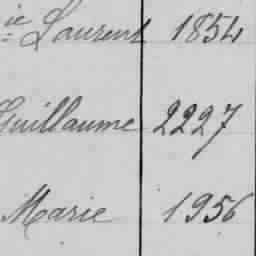 ie Laurent 1854
Guillaume 2227
Marie 1956